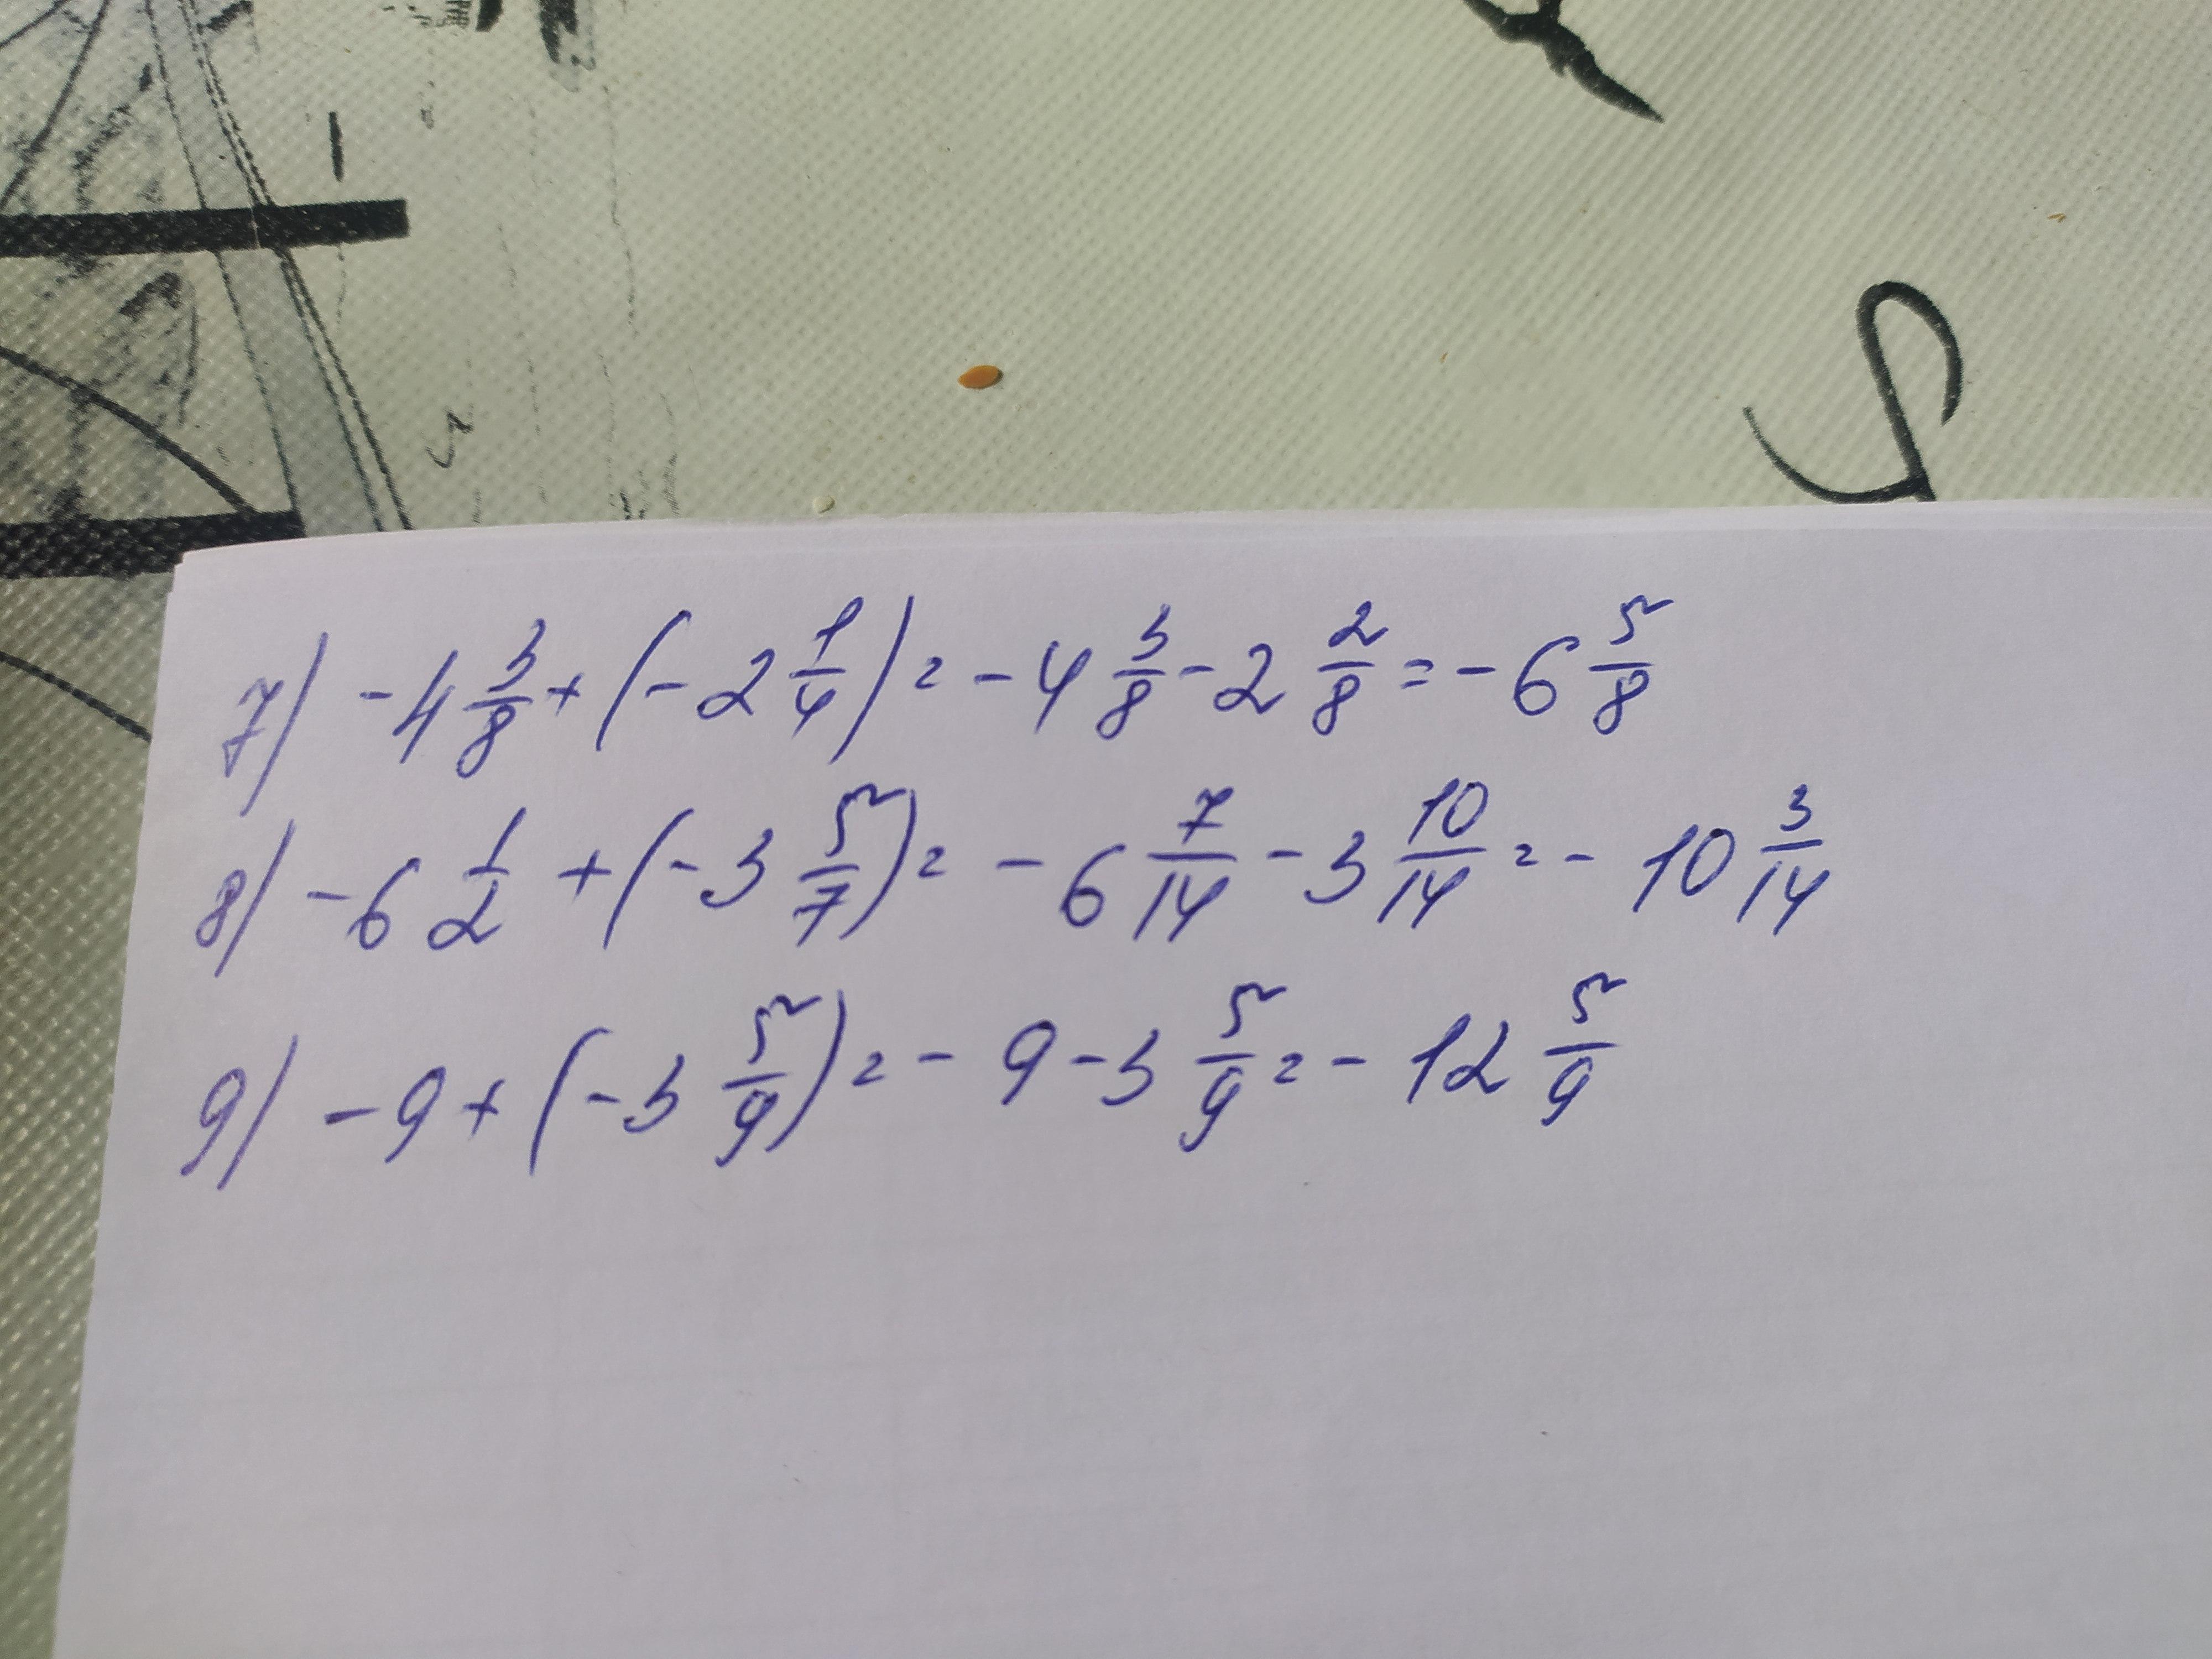 7) -4 3/8 + (-2 1/4) = -4 3/8 - 2 2/8 = -6 5/8
8) -6 1/2 + (-3 5/7) = -6 7/14 - 3 10/14 = -10 3/14
9) -9 + (-3 5/9) = -9 - 3 5/9 = -12 5/9